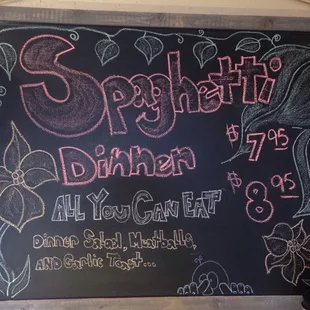 Spaghetti
Dinner
$7.95
All You Can Eat
$8.95
Dinner Salad, Meatballs,
and Garlic Toast...